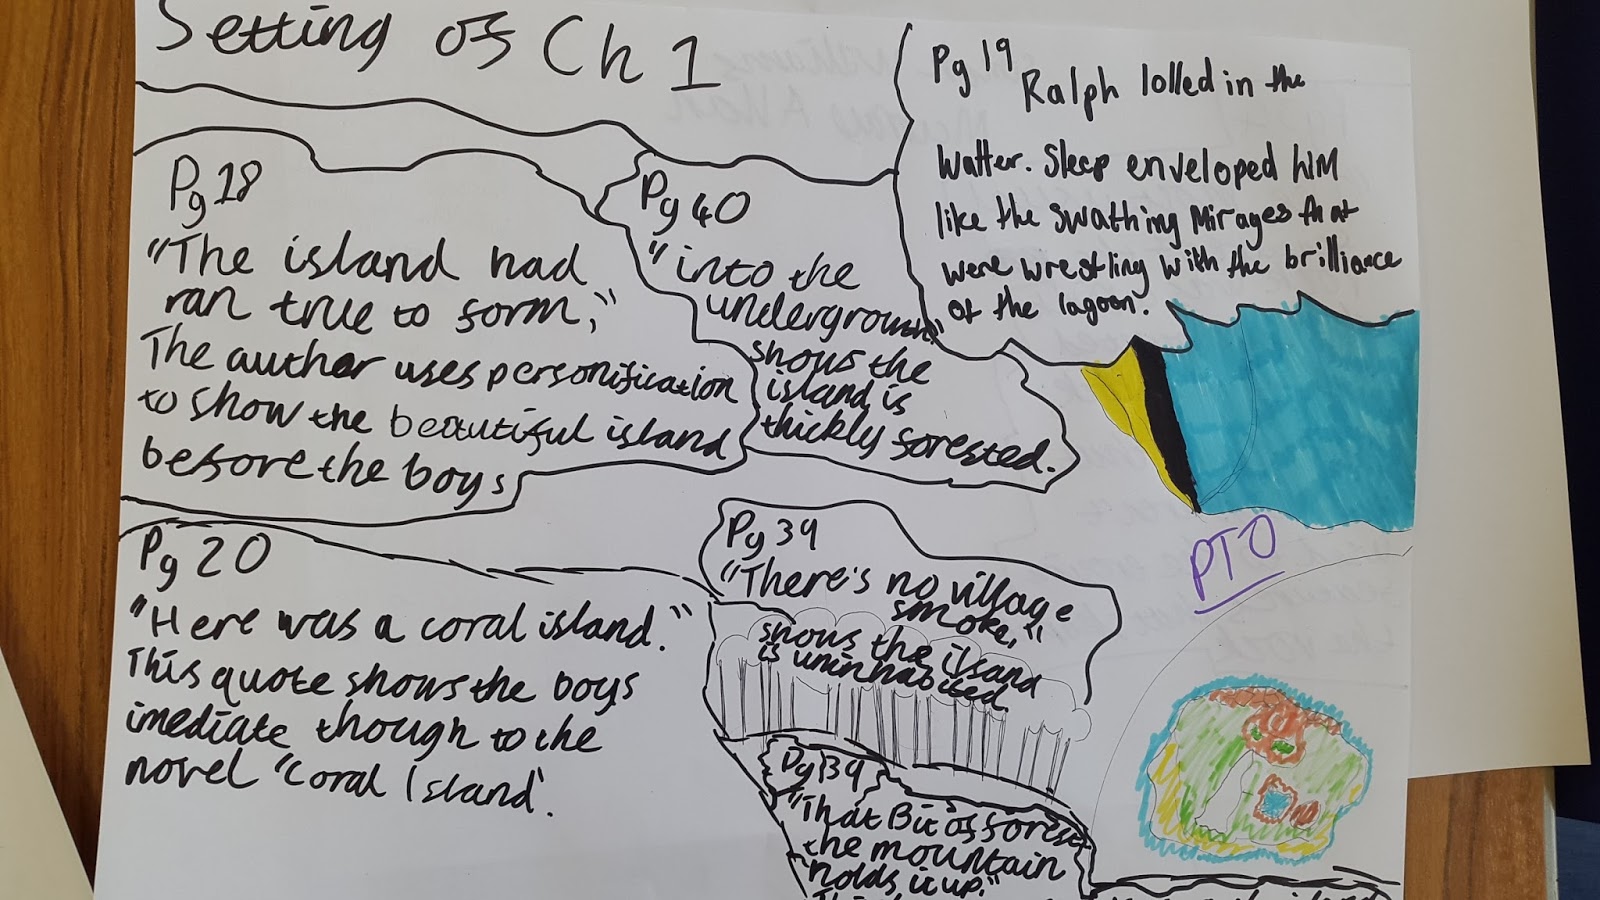 Setting of Ch 1
Pg 18
"The island had
ran true to form,"
The author uses personification
to show the beautiful island
before the boys
Pg 40
"into the
underground"
shows the
island is
thickly forested.
Pg 19
Ralph lolled in the
Watter. Sleep enveloped him
like the swathing Mirages that
were wrestling with the brilliance
of the lagoon.
PTO
Pg 20
"Here was a coral island."
This quote shows the boys
imediate though to the
novel 'Coral Island'.
Pg 39
"There's no village
smoke,"
shows the ilsand
is uninhabited.
Pg 39
"That Bit of forest
the mountain
holds it up."